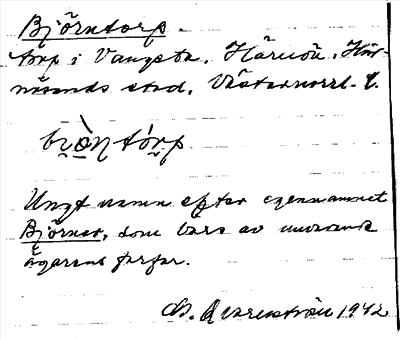 Björntorp
torp i Vangsta, Härnön, Här-
nösands stad, Västernorrl. l.
Ungt namn efter egennamnet
Björner, som bars av nuvarande
ägarens farfar.
1942